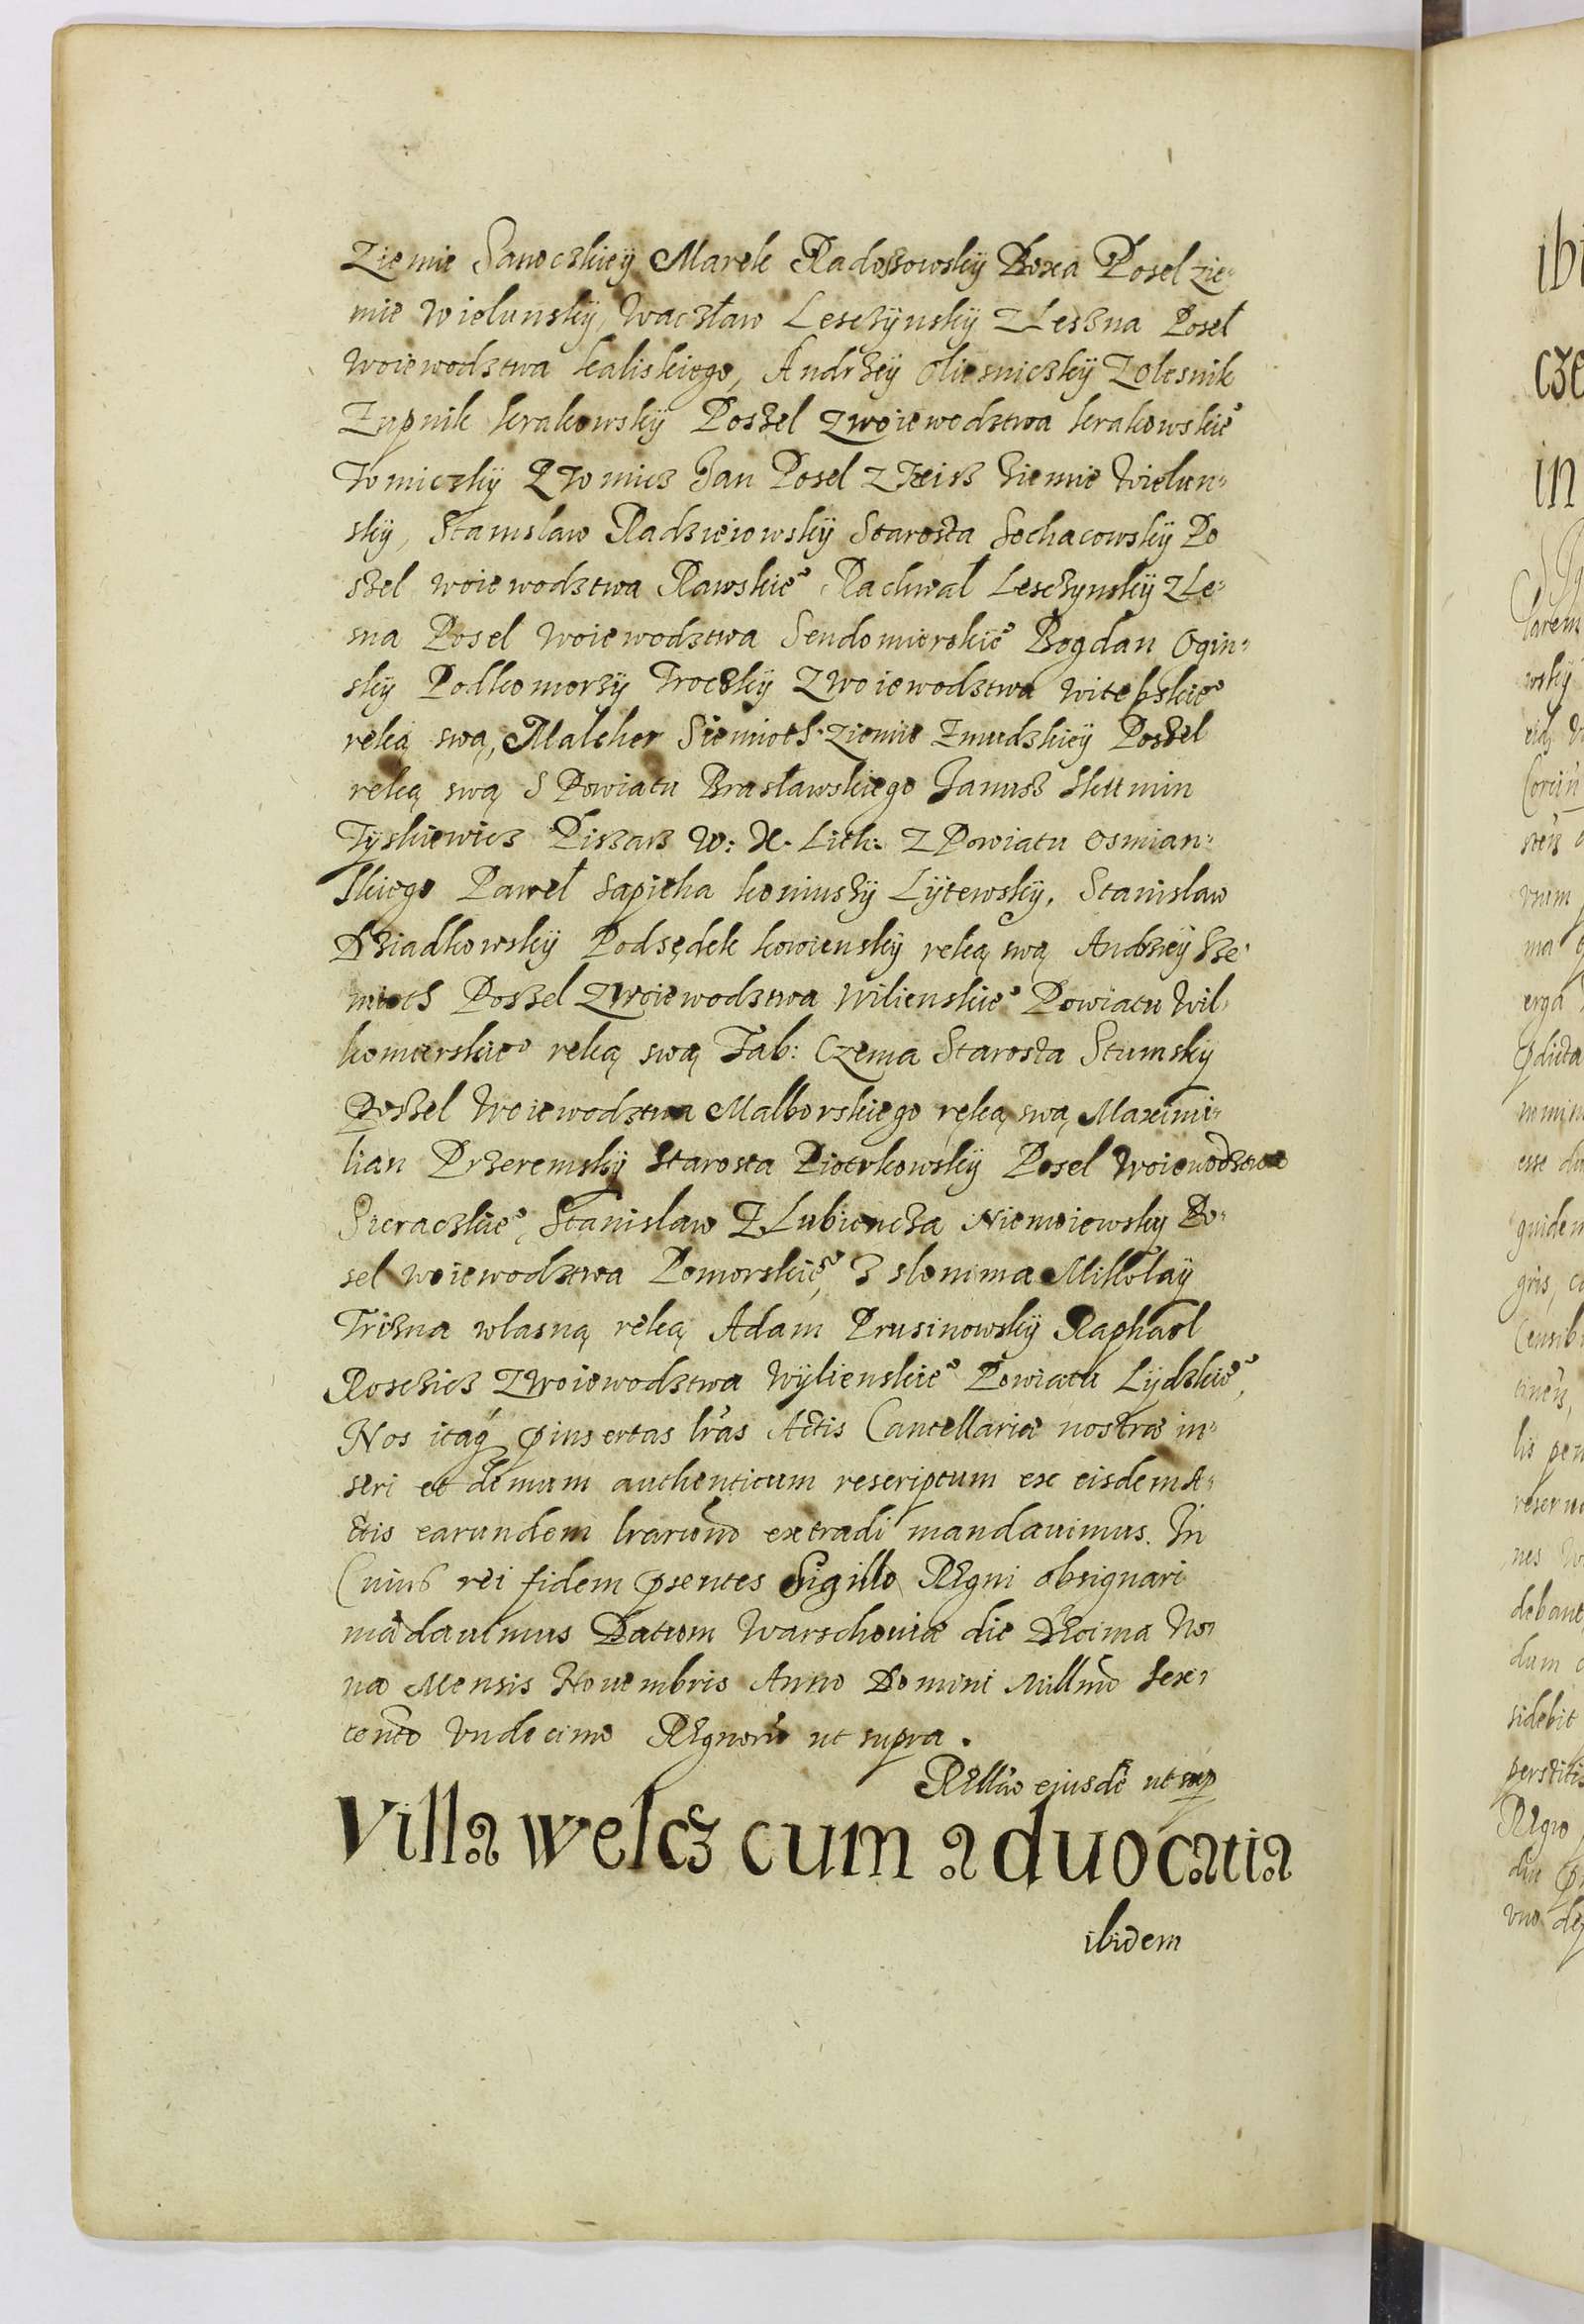 Ziemie Sanoczkieÿ Marek Radoszowskÿ Boxa Posel zie-
mie Wielunskÿ, Waczław Lesczÿnskÿ Z Leszna Poseł
Woiewodztwa kaliskiego, Andrzeÿ Oliesniczkÿ Z Olesnik
Zupnik krakowskÿ Poszel z woiewodztwa krakowskie°
Tomiczkÿ Z Tomicz Jan Posel z teisz ziemie Wielun-
skÿ, Stanisław Radzieiowskÿ Starosta Sochacowskÿ Po
szel woiewodztwa Rawskie° Rachwal Lesczynskÿ z Le-
sna Posel Woiewodztwa Sendomierskie° Bogdan Ogin-
skÿ Podkomorzÿ Troczkÿ Z Woiewodztwa Witepskie°
reką swą, Malcher Siemioth Ziemie Zmudzkieÿ Poszel
reką swą S Powiatu Brasławskiego Janusz Skumin
Tÿskiewicz Piszarz W: X. Lith: Z Powiatu Osmian-
skiego Paweł Sapieha koniuszÿ Lÿtewskÿ, Stanislaw
Dziadkowskÿ Podsędek kowienskÿ reką swą Andrzeÿ Sze-
mioth Poszel z Woiewodztwa Wilienskie° Powiatu Wil-
komierskie° reką swą Fab: Czema Starosta Stumskÿ
Poszel Woiewodztwa Malborskiego ręką swą Maximi-
lian Przeremskÿ Starosta Piotrkowskÿ Posel Woiewodztwa
Sieraczkie°, Stanislaw Z Lubiencza Niemoiewsky Po-
sel woiewodztwa Pomorskie°, Z slonima Mikolaÿ
Trizna wlasną reką Adam Prusinowskÿ Raphael
Rosczicz Z Woiewodztwa Wÿlienskie° Powiatu Lÿdzkie°,
Nos itaq́ p̱insertas lr̃as Actis Cancellariæ nostræ in-
seri et demum authenticum rescriptum ex eisdem A-
ctis earundem lrarum extradi mandauimus. In
Cuius rei fidem p̱sentes Sigillo Regni obsignari
mãdauimus Datum Warschouiæ die Decima No-
na Mensis Nouembris Anno Domini Millmo Sex-
cento Vndecimo Regnorũ ut supra.
Rellão ejusdẽ ut sup
Villa welcz cum aduocatia
ibidem